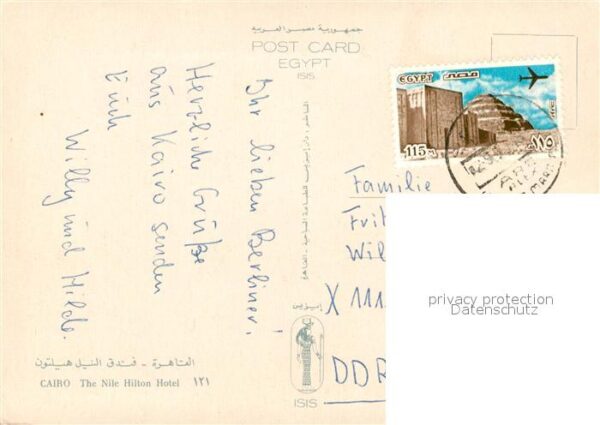 جمهورية مصر العربية
POST CARD
EGYPT
ISIS
EGYPT مصر
115 ١١٥
Ihr lieben Berliner,
Herzliche Grüße
aus Kairo senden
Euch
Willy und Hilde.
Familie
Frit
Wil
X 111
DDR
privacy protection
Datenschutz
إيزيس
ISIS
القاهرة - فندق النيل هيلتون
CAIRO The Nile Hilton Hotel ١٢١